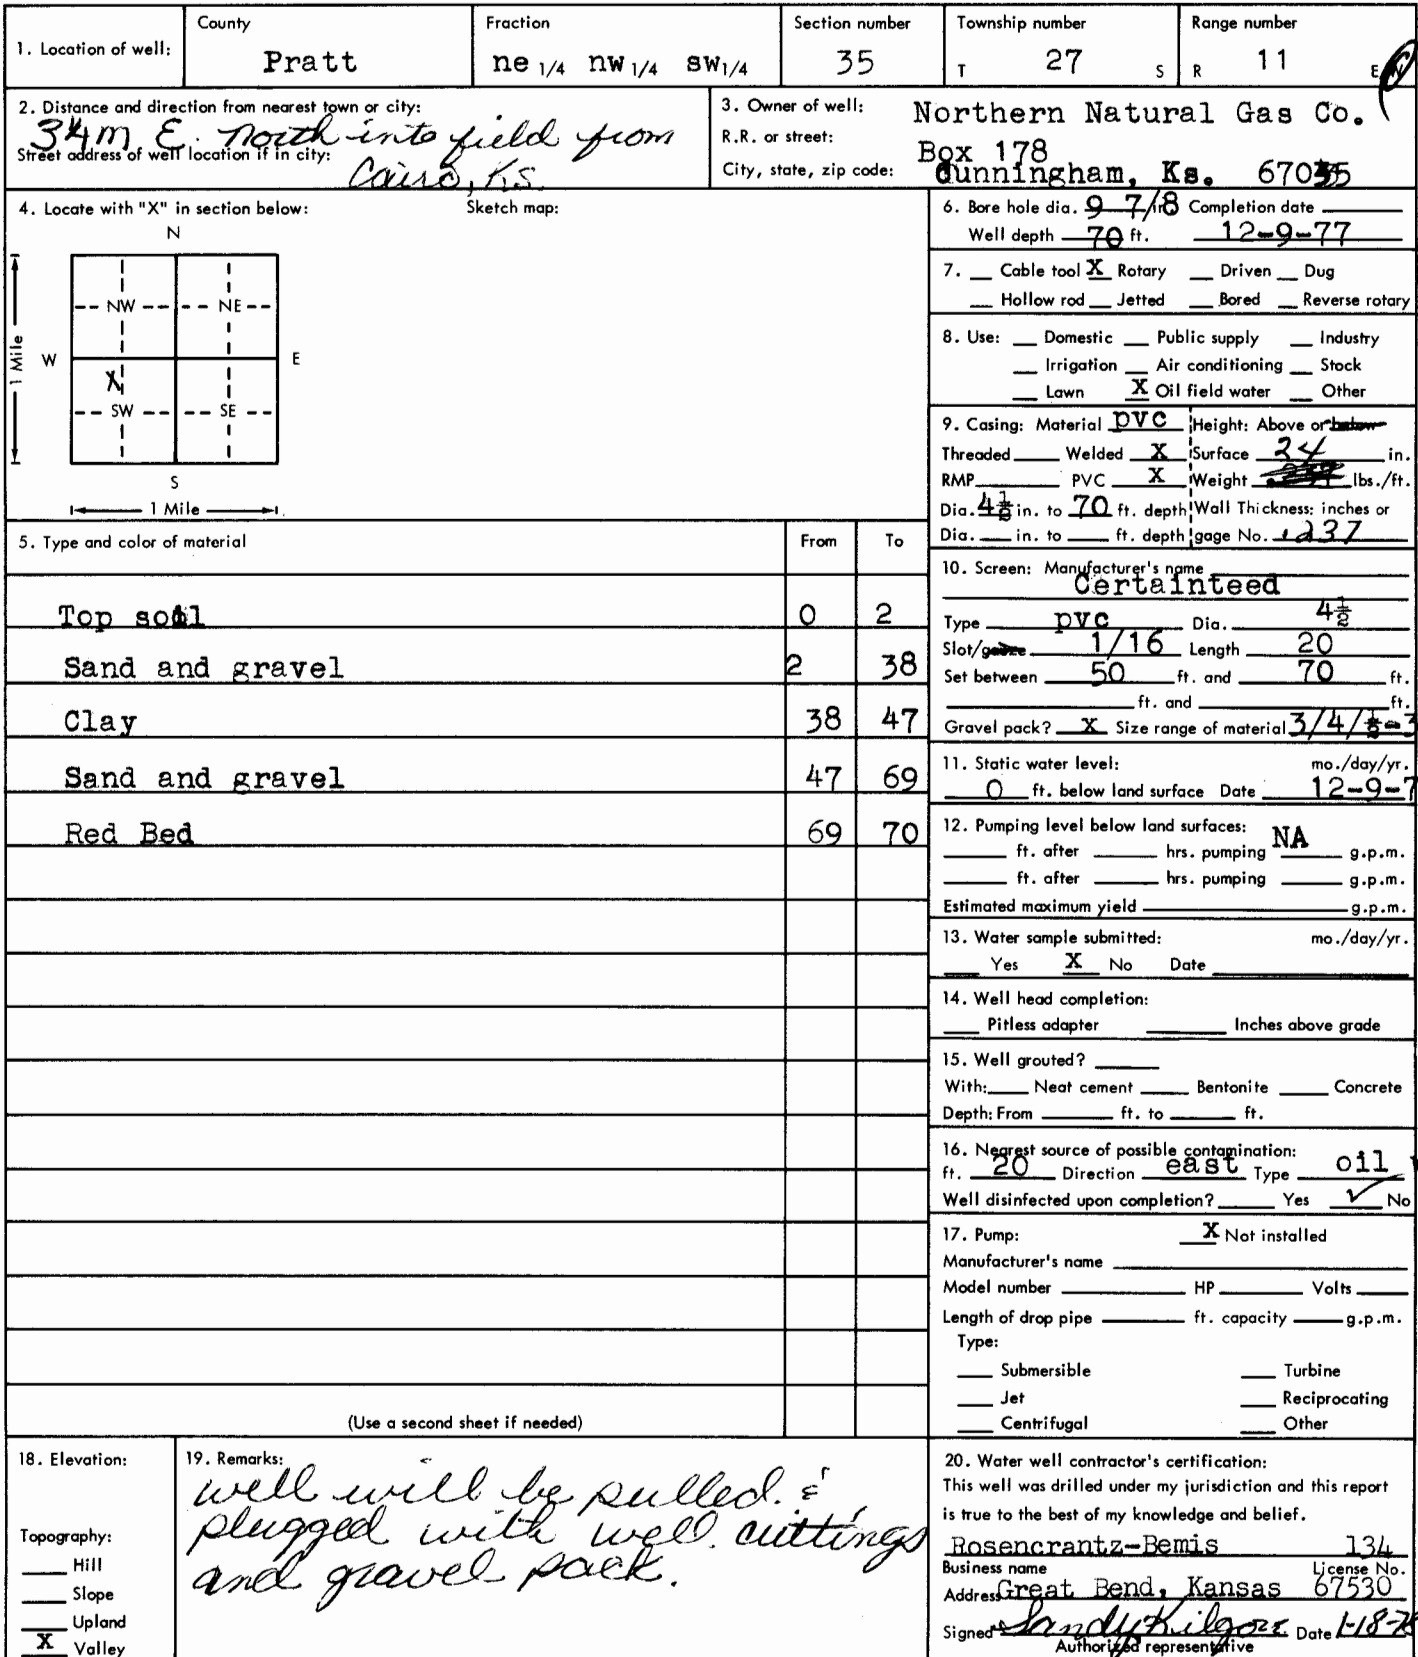 1. Location of well:
County
Pratt
Fraction
ne 1/4 nw 1/4 sw 1/4
Section number
35
Township number
T 27 S
Range number
R 11 E W
2. Distance and direction from nearest town or city:
3/4 m E. North into field from
Street address of well location if in city:
Cairo, Ks.
3. Owner of well: Northern Natural Gas Co.
R.R. or street: Box 178
City, state, zip code: Cunningham, Ks. 67035
4. Locate with "X" in section below:
Sketch map:
N
NW NE
1 Mile W E
X
SW SE
S
1 Mile
5. Type and color of material From To
Top soil 0 2
Sand and gravel 2 38
Clay 38 47
Sand and gravel 47 69
Red Bed 69 70
(Use a second sheet if needed)
6. Bore hole dia. 9 7/8 in Completion date
Well depth 70 ft. 12-9-77
7. Cable tool X Rotary Driven Dug
Hollow rod Jetted Bored Reverse rotary
8. Use: Domestic Public supply Industry
Irrigation Air conditioning Stock
Lawn X Oil field water Other
9. Casing: Material pvc Height: Above or below
Threaded Welded X Surface 24 in.
RMP PVC X Weight lbs./ft.
Dia. 4½ in. to 70 ft. depth Wall Thickness: inches or
Dia. in. to ft. depth gage No. .237
10. Screen: Manufacturer's name
Certainteed
Type pvc Dia. 4½
Slot/gauze 1/16 Length 20
Set between 50 ft. and 70 ft.
ft. and ft.
Gravel pack? X Size range of material 3/4/½-3
11. Static water level: mo./day/yr.
0 ft. below land surface Date 12-9-7
12. Pumping level below land surfaces: NA
ft. after hrs. pumping g.p.m.
ft. after hrs. pumping g.p.m.
Estimated maximum yield g.p.m.
13. Water sample submitted: mo./day/yr.
Yes X No Date
14. Well head completion:
Pitless adapter Inches above grade
15. Well grouted?
With: Neat cement Bentonite Concrete
Depth: From ft. to ft.
16. Nearest source of possible contamination:
ft. 20 Direction east Type oil
Well disinfected upon completion? Yes ✓ No
17. Pump: X Not installed
Manufacturer's name
Model number HP Volts
Length of drop pipe ft. capacity g.p.m.
Type:
Submersible Turbine
Jet Reciprocating
Centrifugal Other
18. Elevation:
Topography:
Hill
Slope
Upland
X Valley
19. Remarks:
well will be pulled. &
plugged with well cuttings
and gravel pack.
20. Water well contractor's certification:
This well was drilled under my jurisdiction and this report
is true to the best of my knowledge and belief.
Rosencrantz-Bemis 134
Business name License No.
Address Great Bend, Kansas 67530
Signed Sandy Kilgore Date 1-18-78
Authorized representative